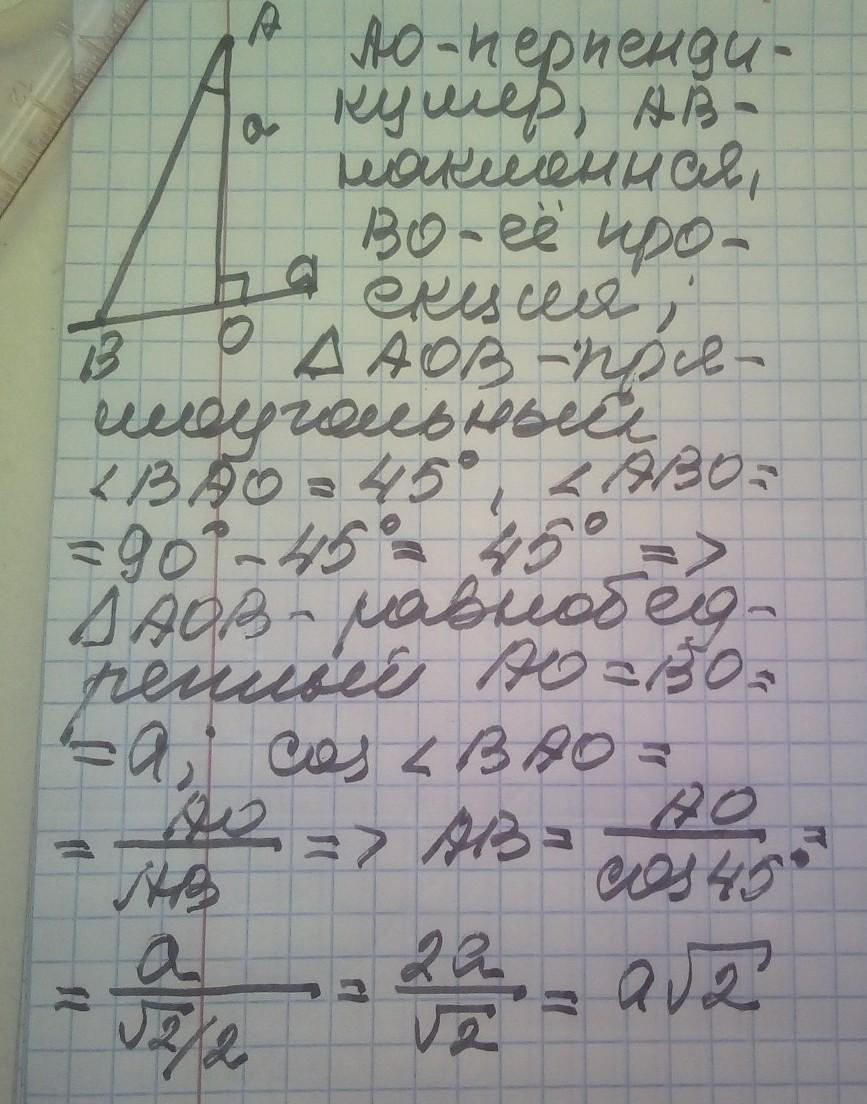 A
a
B
O
a
AO-перпенди-
куляр, AB-
наклонная,
BO-её про-
екция;
△ AOB -пря-
моугольный
∠BAO = 45°, ∠ABO=
=90° - 45° = 45° =>
△AOB- равнобед-
ренный AO = BO=
= a; cos ∠BAO =
= AO/AB => AB = AO/cos 45° =
= a/√2/2 = 2a/√2 = a√2